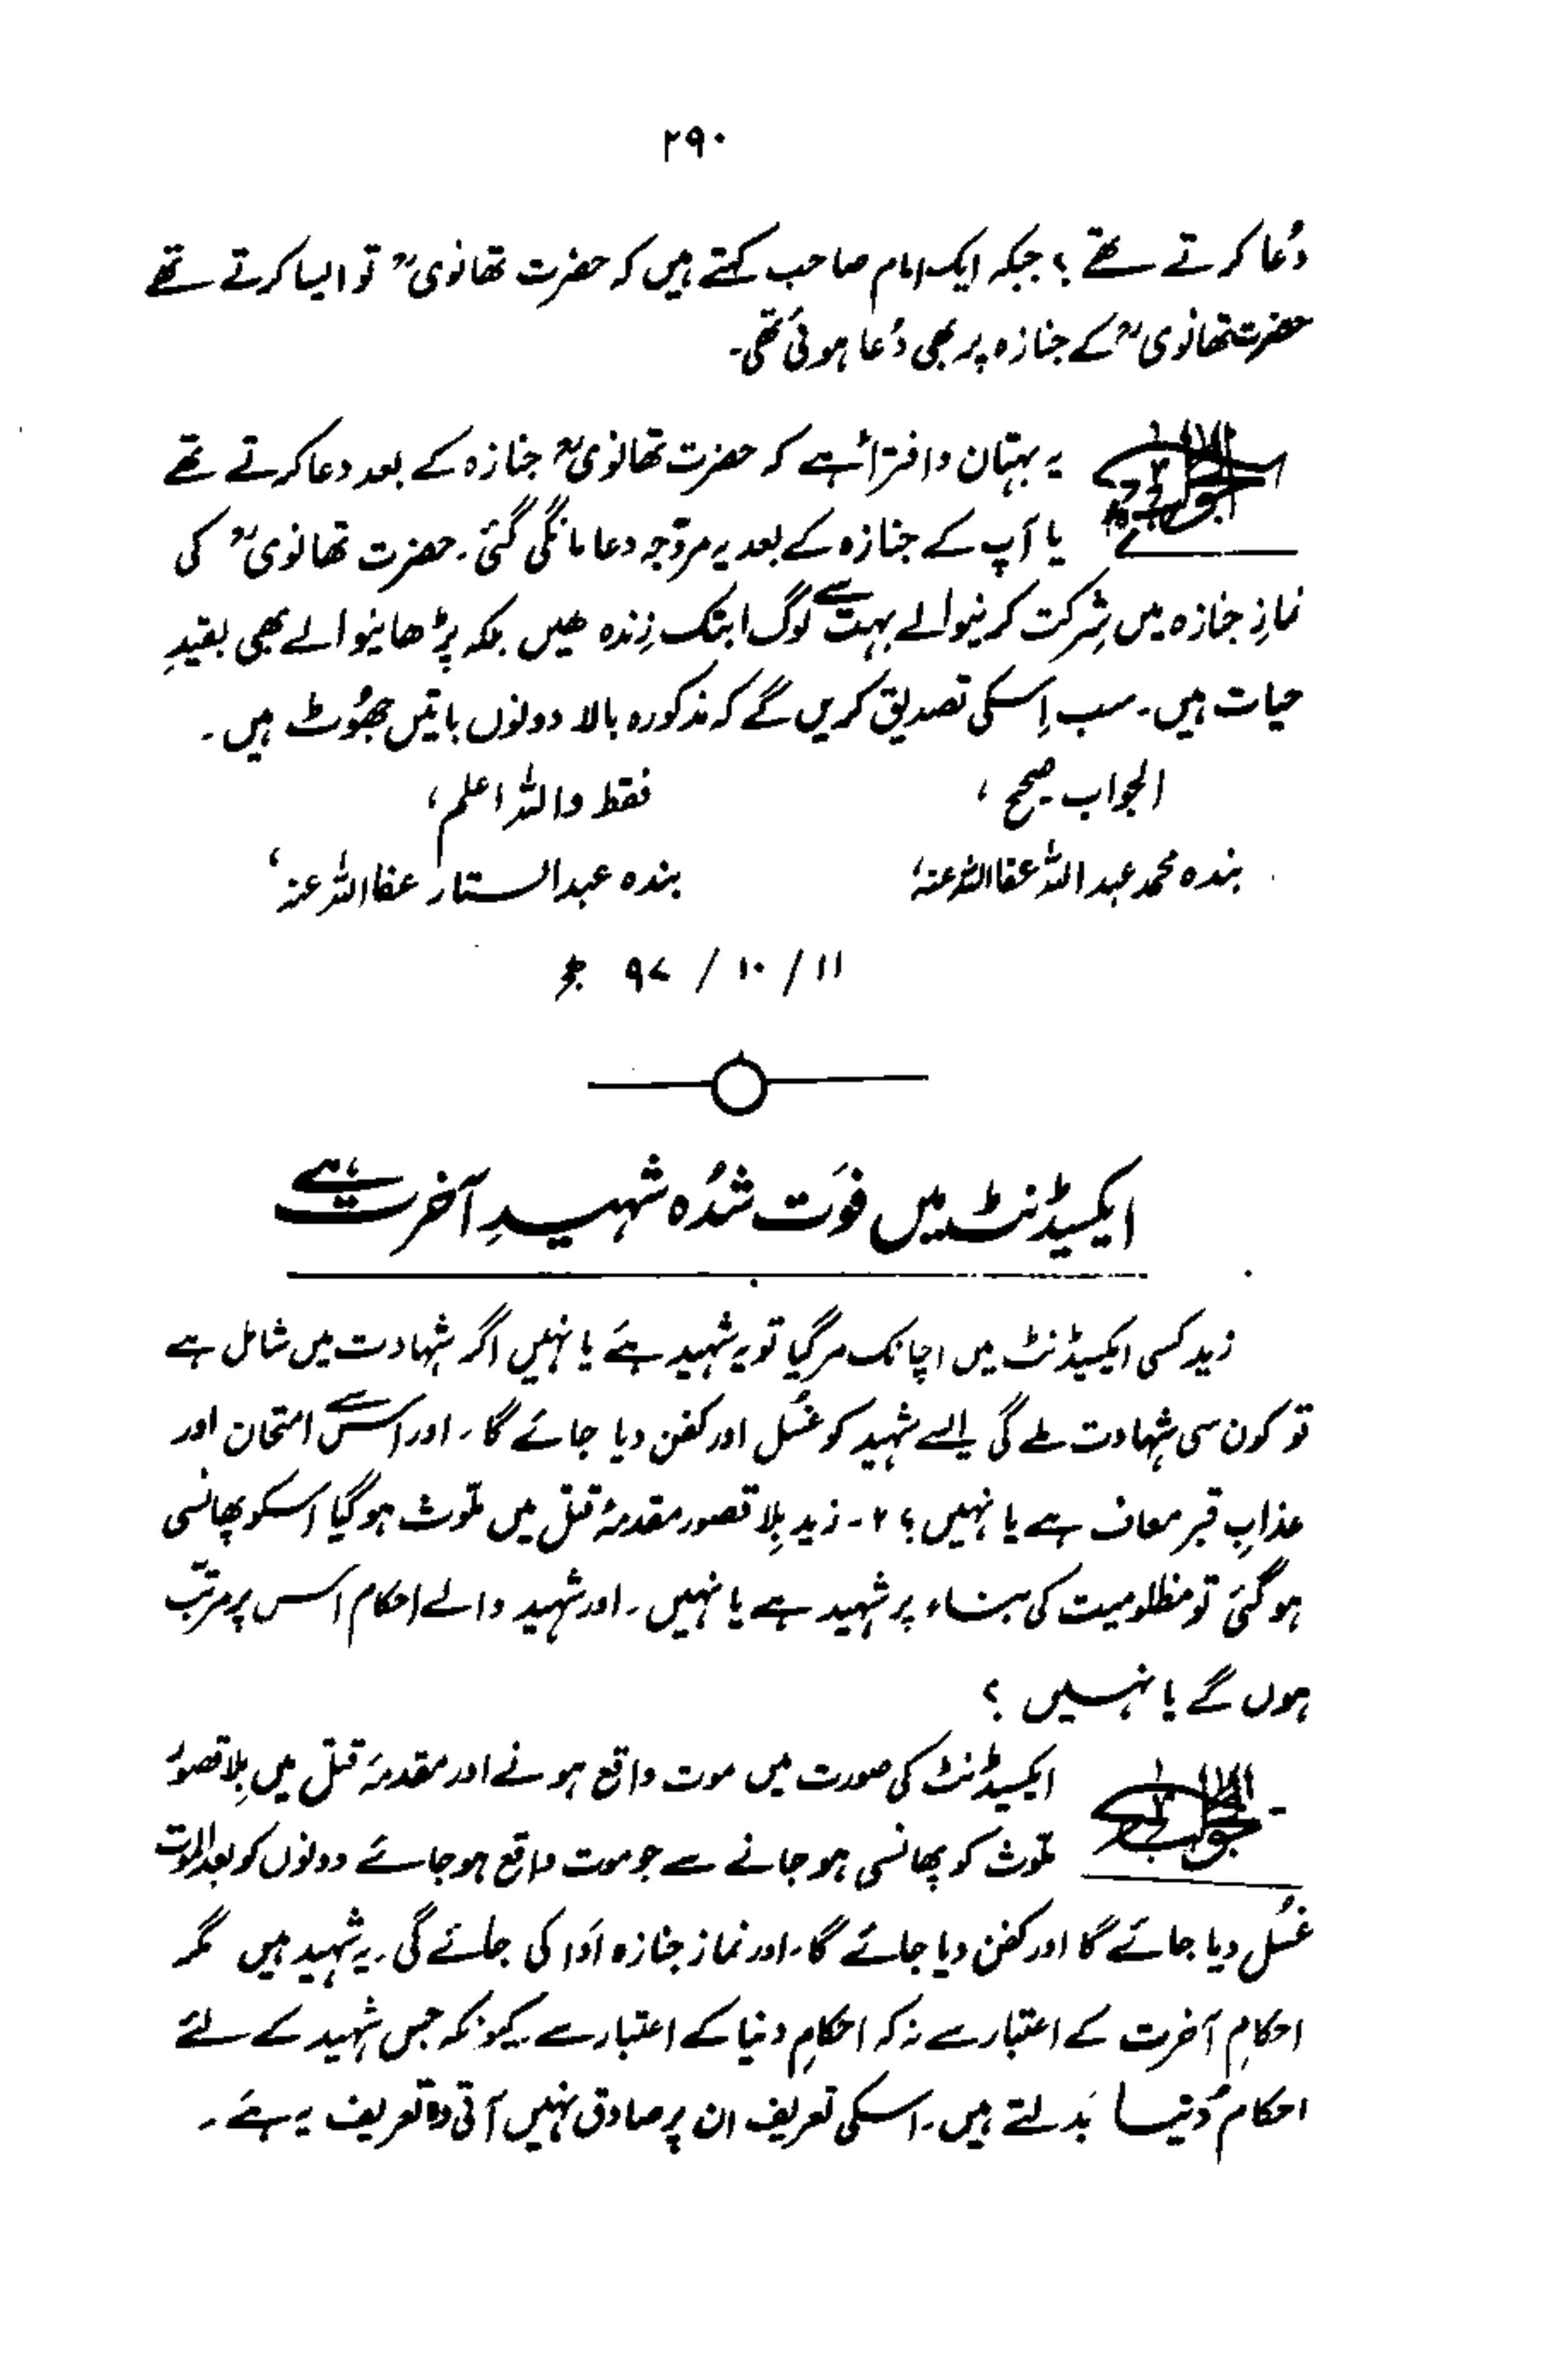 ۲۹۰
دُعا کرتے تھے؟ جبکہ ایک امام صاحب کہتے ہیں کہ حضرت تھانوی رح تو ایسا کرتے تھے
حضرت تھانوی رح کے جنازہ پر بھی دُعا ہوئی تھی۔
الجواب یہ بہتان وافتراءہے کہ حضرت تھانوی رح جنازہ کے بعد دعا کرتے تھے
یا آپ کے جنازہ کے بعد یہ مروّجہ دعا مانگی گئی۔ حضرت تھانوی رح کی
نمازِ جنازہ میں شرکت کرنیوالے بہت سے لوگ ابتک زندہ ہیں بلکہ پڑھانیوالے بھی بقیدِ
حیات ہیں۔ سب اِسکی تصدیق کریں گے کہ مذکورہ بالا دونوں باتیں جھُوٹ ہیں۔
الجواب صحیح، فقط واللہ اعلم،
بندہ محمد عبداللہ عفااللہ عنہ، بندہ عبدالستار عفااللہ عنہ،
۱۱/ ۱۰ / ۹۷ ھ
ایکسیڈنٹ میں فَوت شُدُہ شہیدِ آخرت ہے
زید کسی ایکسیڈنٹ میں اچانک مرگیا تو یہ شہید ہے یا نہیں اگر شہادت میں شامل ہے
تو کون سی شہادت ملے گی ایسے شہید کو غسل اور کفن دیا جائے گا۔ اور اس سے امتحان اور
عذابِ قبر معاف ہے یا نہیں؟ ۲۔ زید بِلا قصور مقدمۂ قتل میں ملوّث ہوگیا اسکو پھانسی
ہوگئی تو مظلومیت کی بناء پر شہید ہے یا نہیں۔ اور شہید والے احکام اس پر مرتب
ہوں گے یا نہیں؟
الجواب ایکسیڈنٹ کی صورت میں موت واقع ہونے اور مقدمۂ قتل میں بِلا قصور
ملوّث کو پھانسی ہو جانے سے جو موت واقع ہو جائے دونوں کو بعد الموت
غسل دیا جائے گا اور کفن دیا جائے گا۔ اور نماز جنازہ اَدا کی جائے گی۔ یہ شہید ہیں مگر
احکامِ آخرت کے اعتبار سے نہ کہ احکامِ دنیا کے اعتبار سے۔ کیونکہ جس شہید کے لئے
احکام دُنیا بَدلتے ہیں۔ اسکی تعریف ان پر صادق نہیں آتی وہ تعریف یہ ہے۔